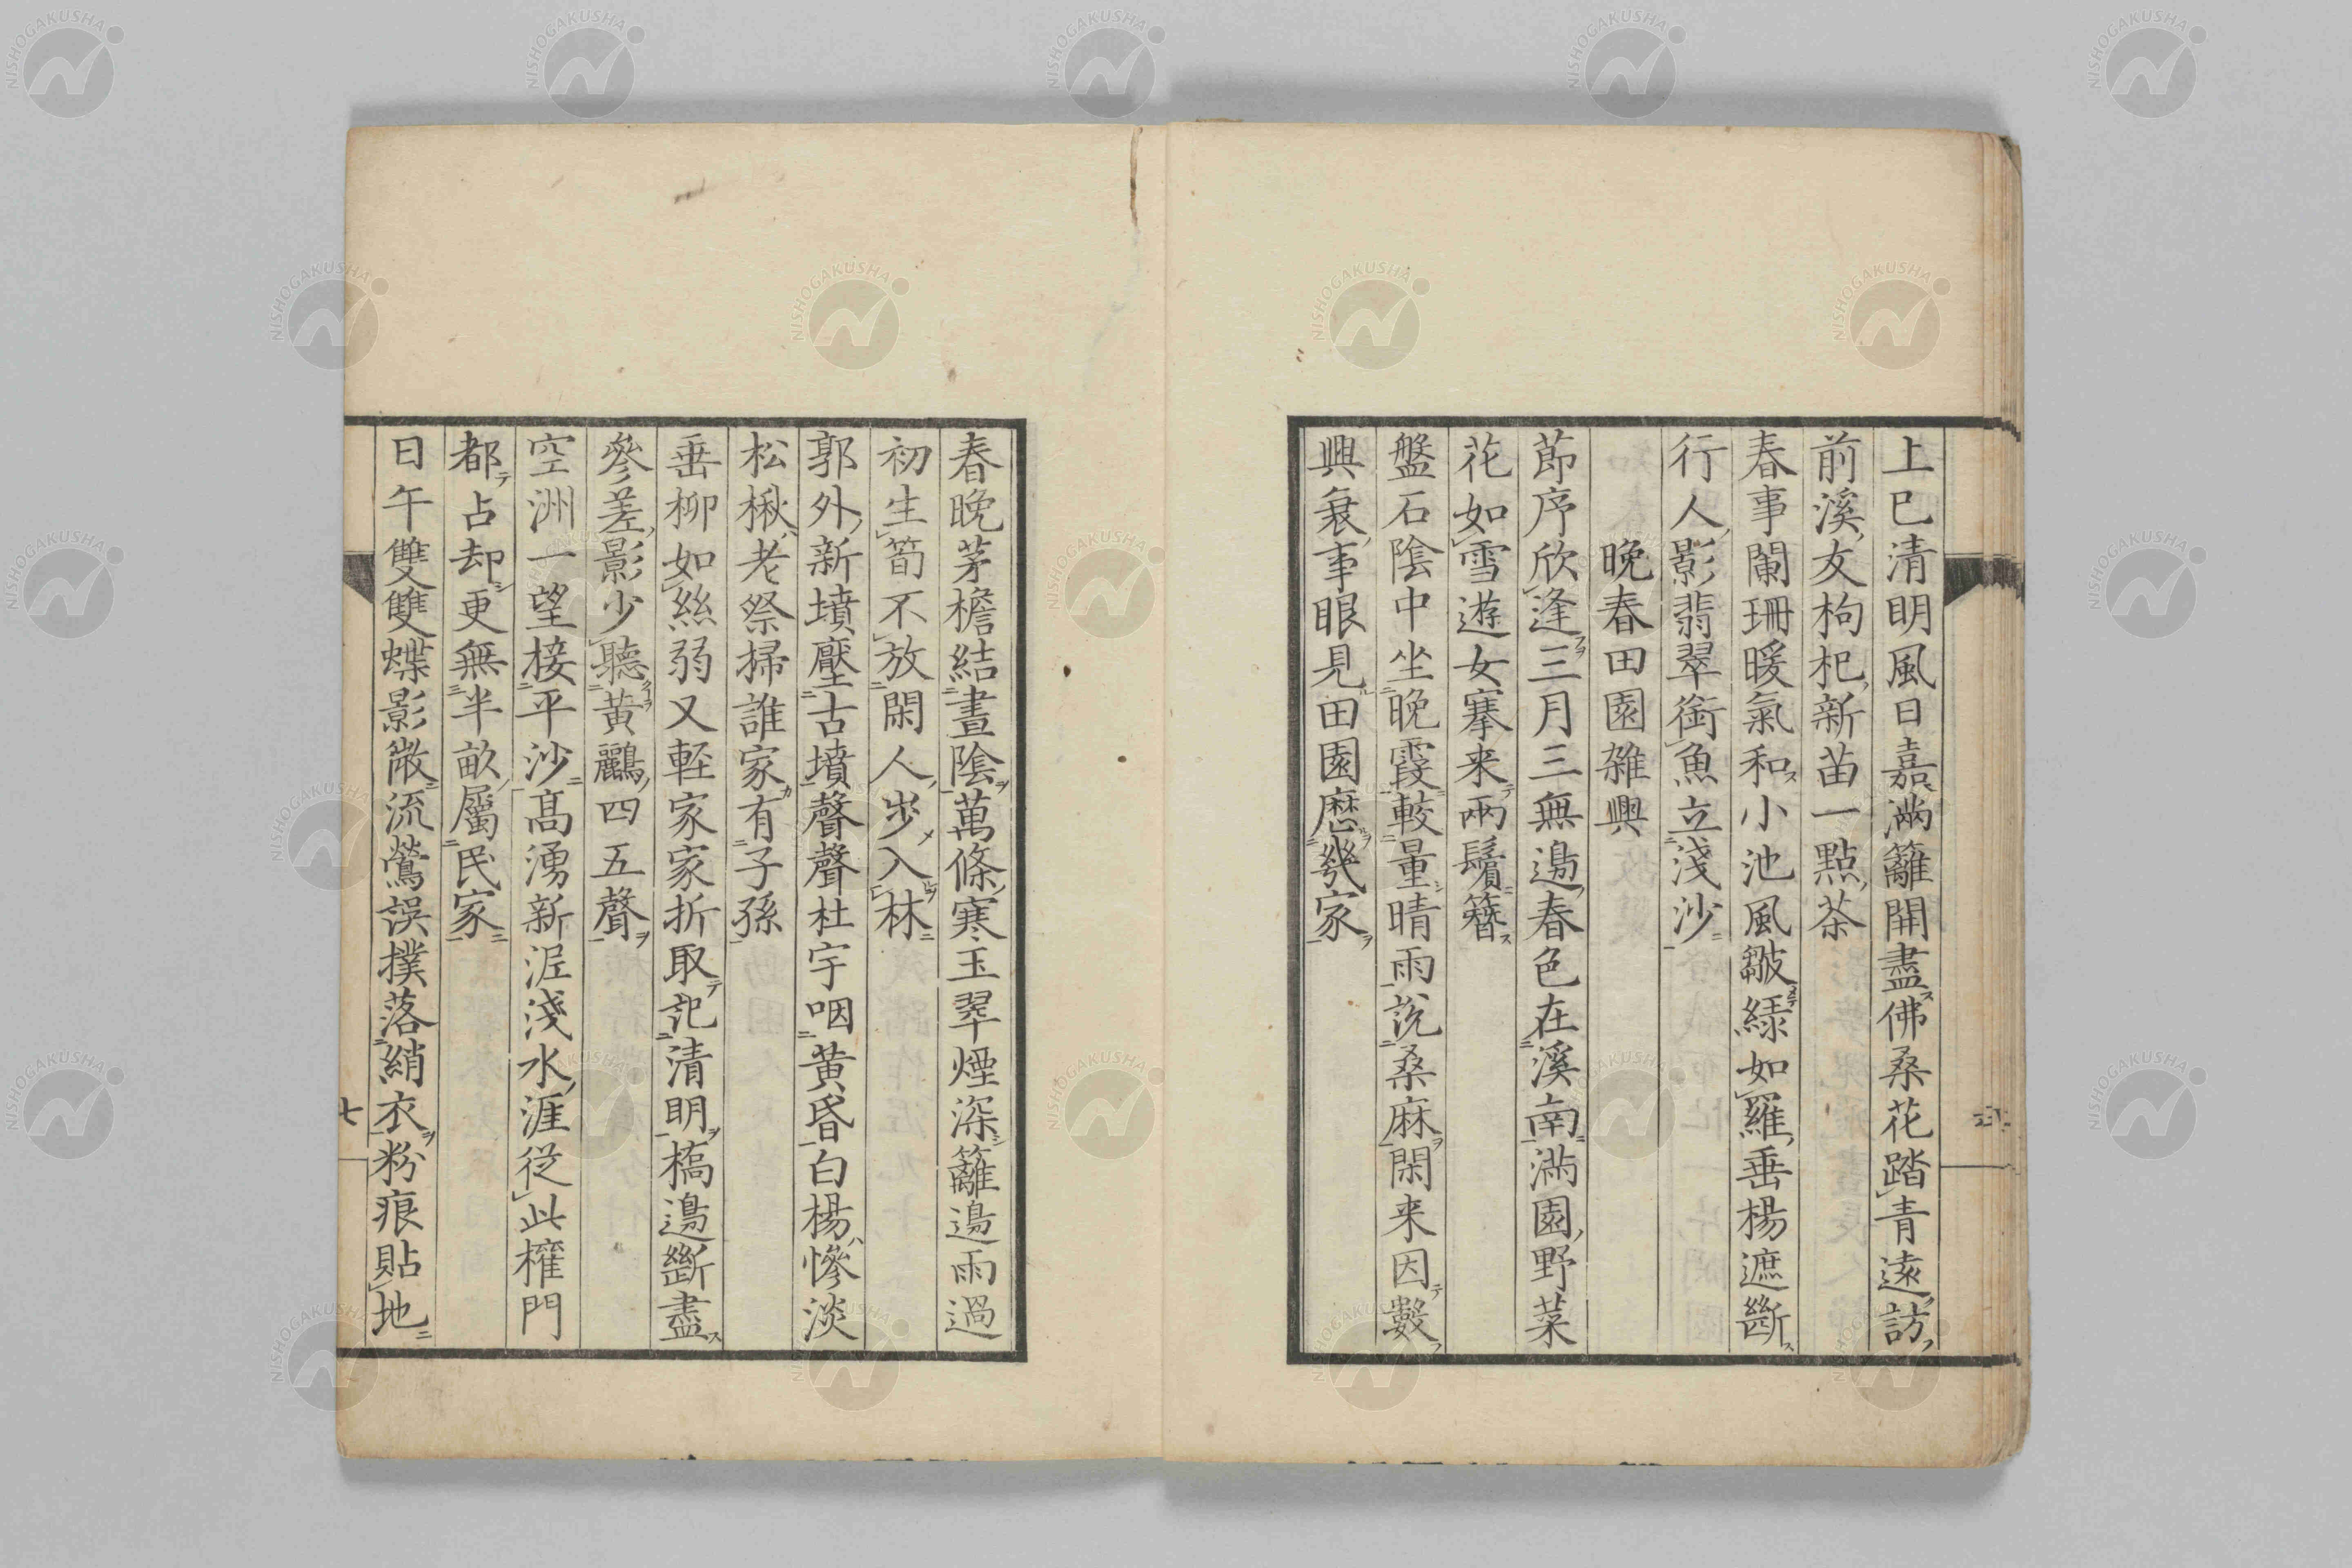 上巳清明風日嘉滿籬開盡佛桑花踏青遠訪
前溪女枸杞新苗一點茶
春事闌珊暖氣和小池風皺綠如羅垂楊遮斷
行人影翡翠銜魚立淺沙
晩春田園雜興
節序欣逢三月三無邊春色在溪南滿園野菜
花如雪遊女搴来兩鬢簪
盤石陰中坐晩霞較量晴雨說桑麻閑来因數
興衰事眼見田園歷幾家
春晩茅檐結晝陰萬條寒玉翠煙深籬邊雨過
初生筍不放閑人步入林
郭外新墳壓古墳聲聲杜宇咽黃昏白楊慘淡
松楸老祭掃誰家有子孫
垂柳如絲弱又輕家家折取記清明橋邊斷盡
參差影少聽黃鸝四五聲
空洲一望接平沙高湧新泥淺水涯從此榷門
都占却更無半畝屬民家
日午雙雙蝶影散流鶯誤撲落綃衣粉痕貼地
七
NISHOGAKUSHA